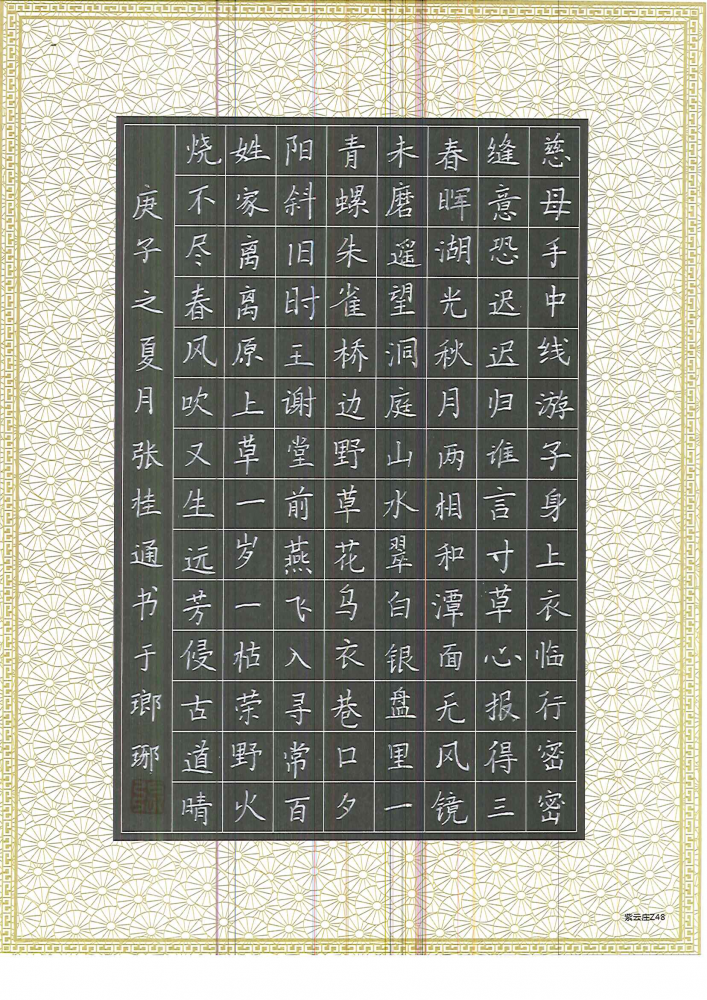 慈母手中线游子身上衣临行密密
缝意恐迟迟归谁言寸草心报得三
春晖湖光秋月两相和潭面无风镜
未磨遥望洞庭山水翠白银盘里一
青螺朱雀桥边野草花乌衣巷口夕
阳斜旧时王谢堂前燕飞入寻常百
姓家离离原上草一岁一枯荣野火
烧不尽春风吹又生远芳侵古道晴
庚子之夏月张桂通书于瑯琊
紫云庄Z48